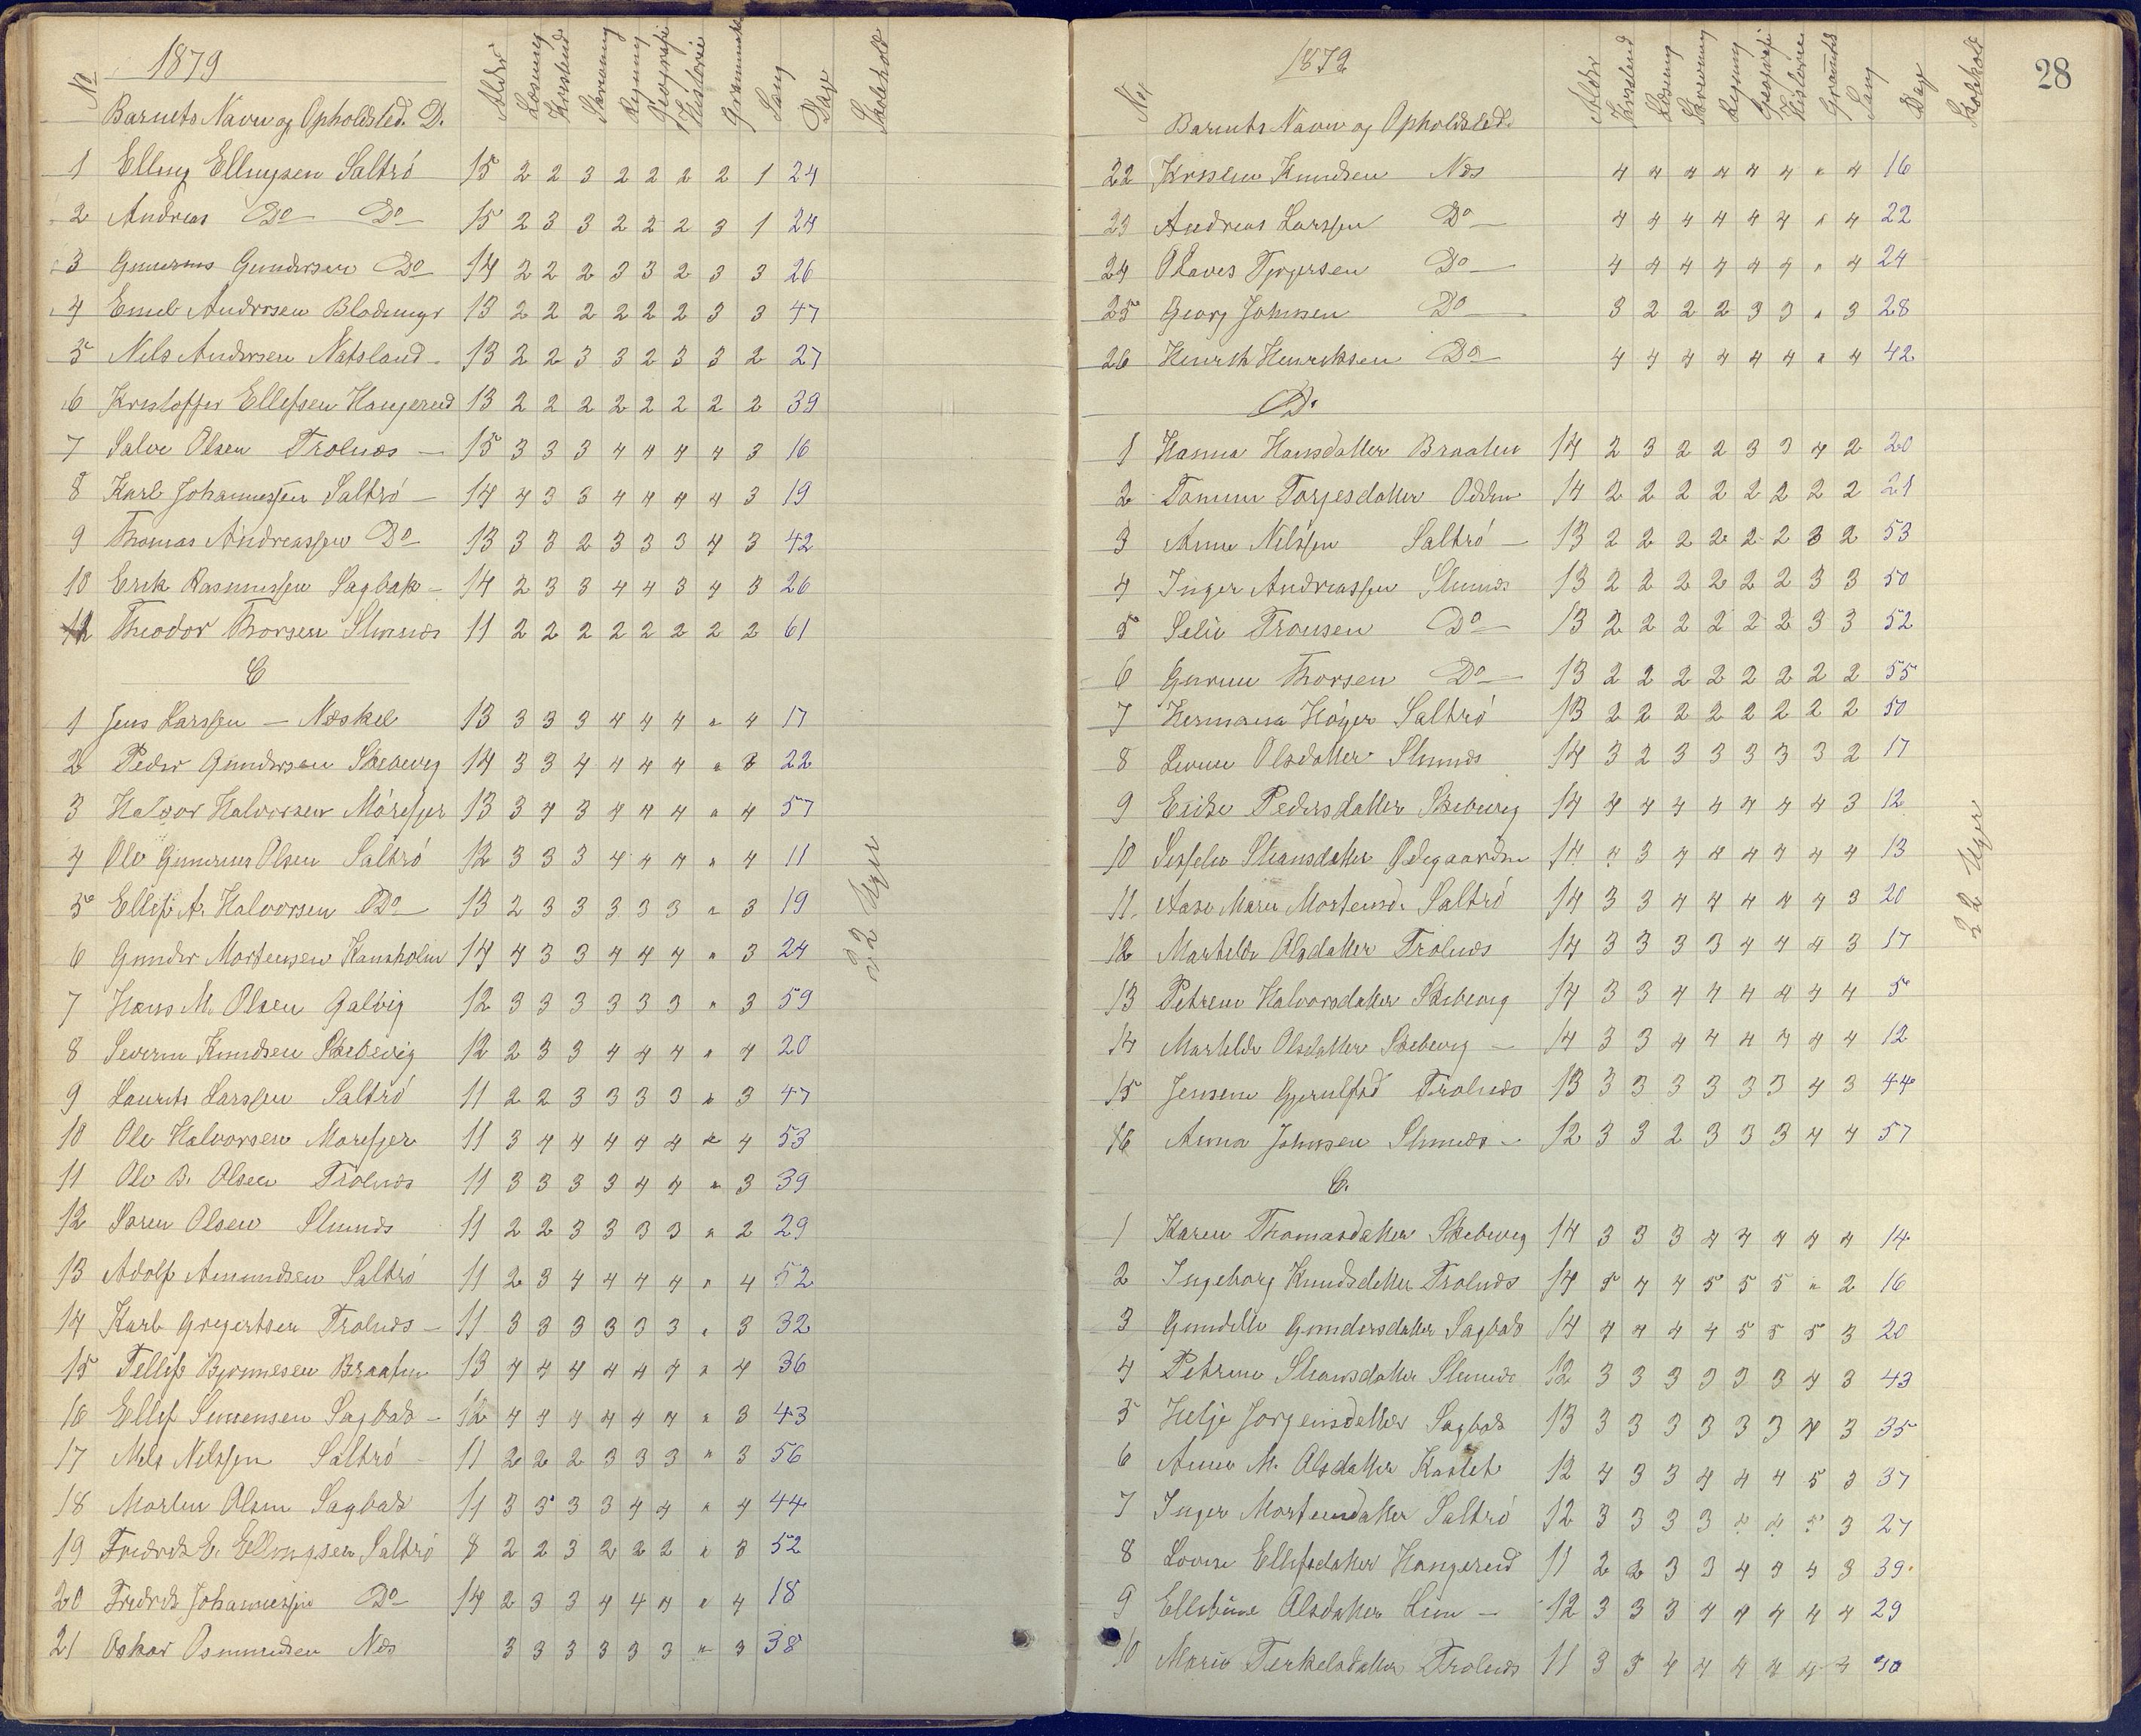 1879
No
Barnets Navn og Opholdsted. D.
Alder Læsning Kristend Skrivning Regning Geografi Historie Grammatik Sang Dage Skolehold
1 Elling Ellingsen Saltrö 15 2 2 3 2 2 2 2 1 24
2 Andreas Do Do 15 2 3 3 2 2 2 3 1 24
3 Gunerius Gundersen Do 14 2 2 2 3 3 2 3 3 26
4 Emil Andersen 13 2 2 2 2 2 2 3 3 47
5 Nels Andersen Natsland 13 2 2 3 3 2 3 3 2 27
6 Kristoffer Ellefsen Hangerud 13 2 2 2 2 2 2 2 2 39
7 Salve Olsen Trolnæs 15 3 3 3 4 4 4 4 3 16
8 Karl Johannessen Saltrö 14 4 3 3 4 4 4 4 3 19
9 Thomas Andreassen Do 13 3 3 2 3 3 3 4 3 42
10 Erik Rasmussen Sagbak 14 2 3 3 4 4 3 4 3 26
12 Theodor Thorsen Slunæs 11 2 2 2 2 2 2 2 2 61
C
1 Jens Larssen Næskel 13 3 3 3 4 4 4 " 4 17
2 Peder Gundersen Skebevig 14 3 3 4 4 4 4 " 3 22
3 Halvor Halvorsen Mörefjer 13 3 4 3 4 4 4 " 4 57
4 Ole Gunerius Olsen Saltrö 12 3 3 3 4 4 4 " 4 11
5 Ellef A. Halvorsen Do 13 2 3 3 3 3 3 " 3 19
6 Gunder Mortensen Kansholm 14 4 3 3 4 4 4 " 3 24
7 Hans M. Olsen Galvig 12 3 3 3 3 3 3 " 3 59
8 Severin Knudsen Skebevig 12 2 3 3 4 4 4 " 4 20
9 Laurits Larssen Saltrö 11 2 2 3 3 3 3 " 3 47
10 Ole Halvorsen Morefjer 11 3 4 4 4 4 4 " 4 53
11 Ole B. Olsen Trolnæs 11 3 3 3 3 4 4 " 3 39
12 Soren Olsen Slunæs 11 2 2 3 3 3 3 " 2 29
13 Adolf Amundsen Saltrö 11 2 3 4 4 4 4 " 4 52
14 Karl Gregertsen Trolnæs 11 3 3 3 3 3 3 " 3 32
15 Tellef Bjonnesen Braaten 13 4 4 4 4 4 4 " 4 36
16 Ellef Simensen Sagbak 12 4 4 4 4 4 4 " 3 43
17 Nels Nelssen Saltrö 11 2 2 2 3 3 3 " 3 56
18 Morten Olsen Sagbak 11 3 3 3 3 4 4 " 4 44
19 Fredrik E. Ellingsen Saltrö 8 2 2 3 2 2 2 " 3 52
20 Fredrik Johannessen Do 14 2 3 3 4 4 4 " 4 18
21 Oskar Osmundsen Næs 3 3 3 3 3 3 " 3 38
22 Uger
28
1879
No
Barnets Navn og Opholdsted
Alder Kristend Læsning Skrivning Regning Geografi Historie Gramatik Sang Dage Skolehold
22 Kristen Knudsen Næs 4 4 4 4 4 4 " 4 16
23 Andreas Larssen Do 4 4 4 4 4 4 " 4 22
24 Olaves Do 4 4 4 4 4 4 " 4 24
25 Georg Johnsen Do 3 2 2 2 3 3 " 3 28
26 Henrik Henriksen Do 4 4 4 4 4 4 " 4 42
D.
1 Hanna Hansdatter Braaten 14 2 3 2 2 3 3 4 2 20
2 Tomine Torjesdatter Odden 14 2 2 2 2 2 2 2 2 21
3 Anne Nilssen Saltrö 13 2 2 2 2 2 2 3 2 53
4 Inger Andreassen Slunæs 13 2 2 2 2 2 2 3 3 50
5 Selie Tronsen Do 13 2 2 2 2 2 2 3 3 52
6 Gurine Thorsen Do 13 2 2 2 2 2 2 2 2 55
7 Hermana Höyer Saltrö 13 2 2 2 2 2 2 2 2 50
8 Olsdatter Slunæs 14 3 2 3 3 3 3 3 2 17
9 Pedersdatter Skebevig 14 4 4 4 4 4 4 4 3 12
10 Odegaarden 14 4 3 4 4 4 4 4 4 13
11 Aase Marie Mortensd. Saltrö 14 3 3 4 4 4 4 4 3 20
12 Marthelde Olsdatter Trolnæs 14 3 3 3 3 4 4 4 3 17
13 Petrene Halvorsdatter Skebevig 14 3 3 4 4 4 4 4 4 5
14 Marthelde Olsdatter Skebevig 14 3 3 4 4 4 4 4 4 12
15 Jensine Trolnæs 13 3 3 3 3 3 3 4 3 44
16 Anna Johnsen Slunæs 12 3 3 2 3 3 3 4 4 57
C.
1 Karen Thomasdatter Skebevig 14 3 3 3 4 4 4 4 4 14
2 Ingeborg Knudsdatter Trolnæs 14 5 4 4 5 5 5 " 2 16
3 Gundelle Gundersdatter Sagbak 14 4 4 4 4 5 5 5 3 20
4 Petrine Slunæs 12 3 3 3 3 3 3 4 3 43
5 Helje Jorgensdatter Sagbak 13 3 3 3 3 3 3 4 3 35
6 Anne M. Olsdatter Kastet 12 4 3 3 4 4 4 5 3 37
7 Inger Mortensdatter Saltrö 12 3 3 3 3 4 4 5 3 27
8 Lovise Ellefsdatter Hangerud 11 2 2 3 3 4 4 4 3 39
9 Olsdatter Lien 12 3 3 3 4 4 4 4 4 29
10 Marie Terkelsdatter Trolnæs 11 3 3 4 4 4 4 4 4
22 Uger